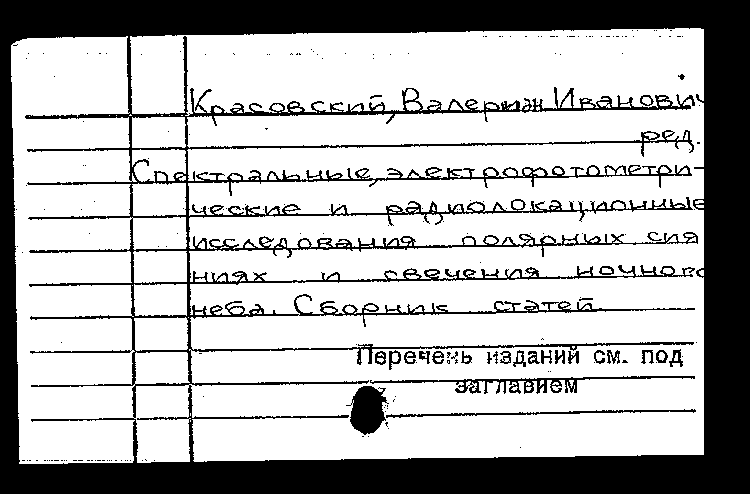 Красовский, Валериан Иванович
ред.
Спектральные, электрофотометри-
ческие и радиолокационные
исследования полярных сия
ниях и свечения ночного
неба. Сборник статей
Перечень изданий см. под
заглавием